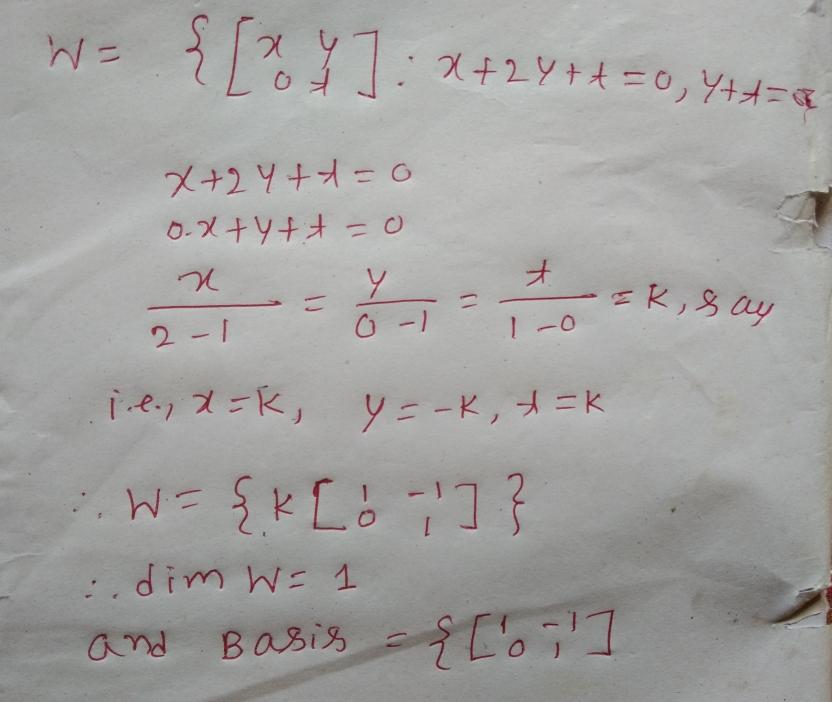 W = { [ x y
0 t ] : x + 2y + t = 0, y + t = 0
x + 2y + t = 0
0.x + y + t = 0
x / (2 - 1) = y / (0 - 1) = t / (1 - 0) = k, say
i.e., x = k, y = -k, t = k
∴ W = { k [ 1 -1
0 1 ] }
∴ dim W = 1
and Basis = { [ 1 -1
0 1 ]